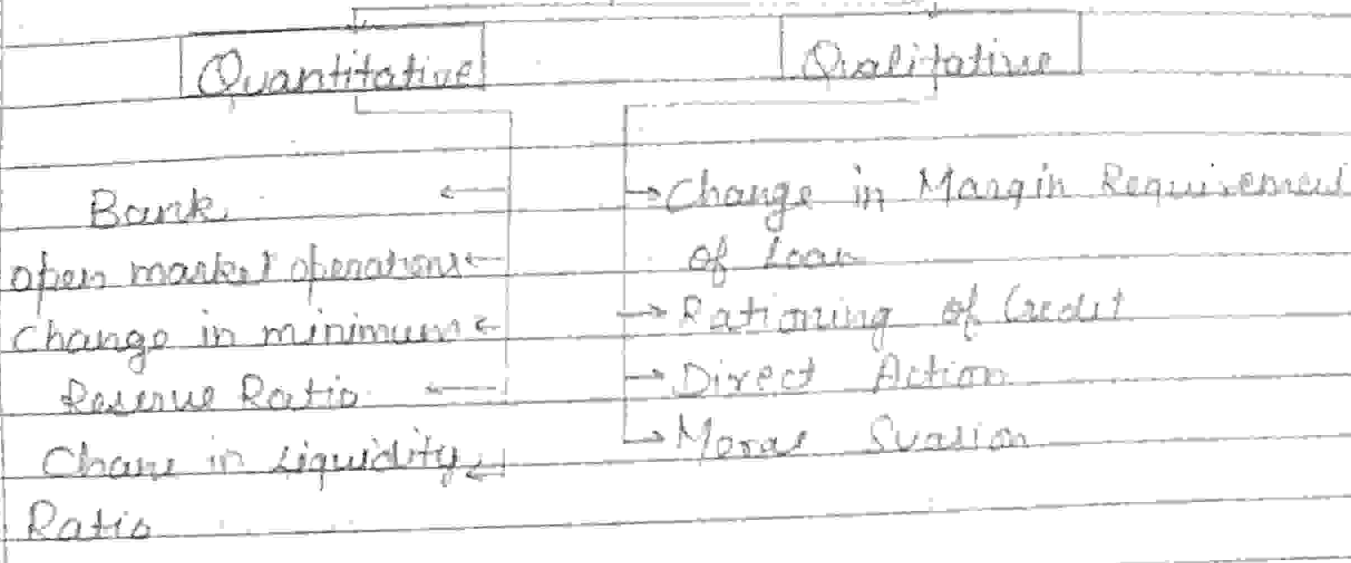 Quantitative
Qualitative
Bank
open market operations
Change in minimum
Reserve Ratio
Chane in Liquidity
Ratio
Change in Margin Requirement
of Loan
Rationing of Credit
Direct Action
Moral Suasion